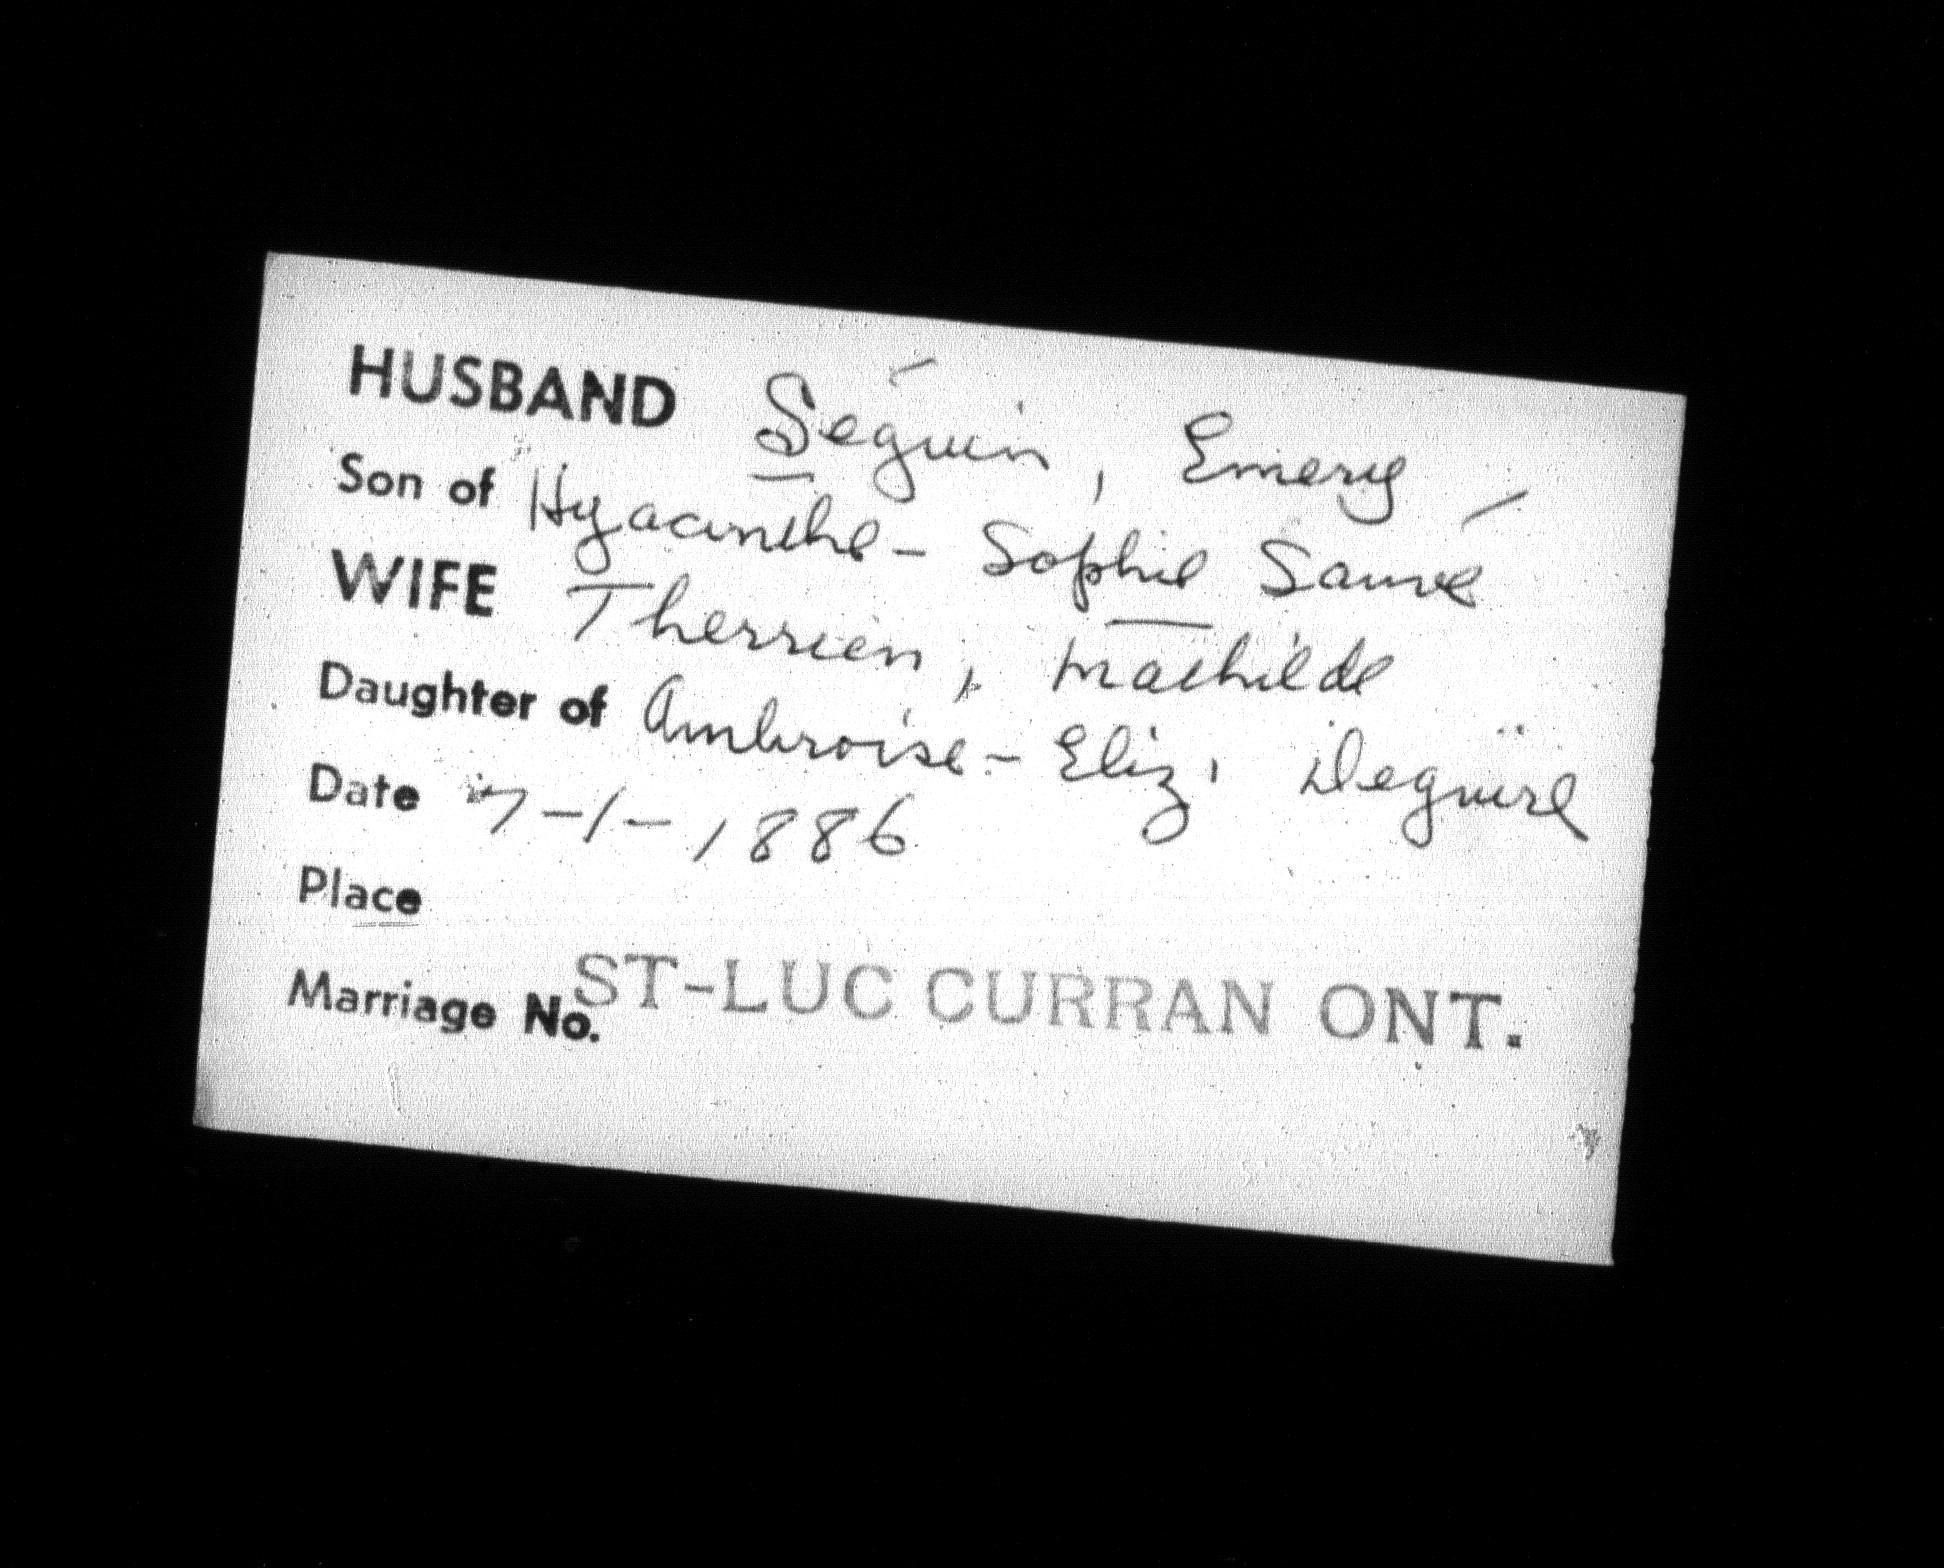 HUSBAND Séguin, Emery
Son of Hyacinthe - Sophie Sauvé
WIFE Therrien, Mathilde
Daughter of Ambroise - Eliz. Deguïre
Date 7-1-1886
Place
Marriage No. ST-LUC CURRAN ONT.